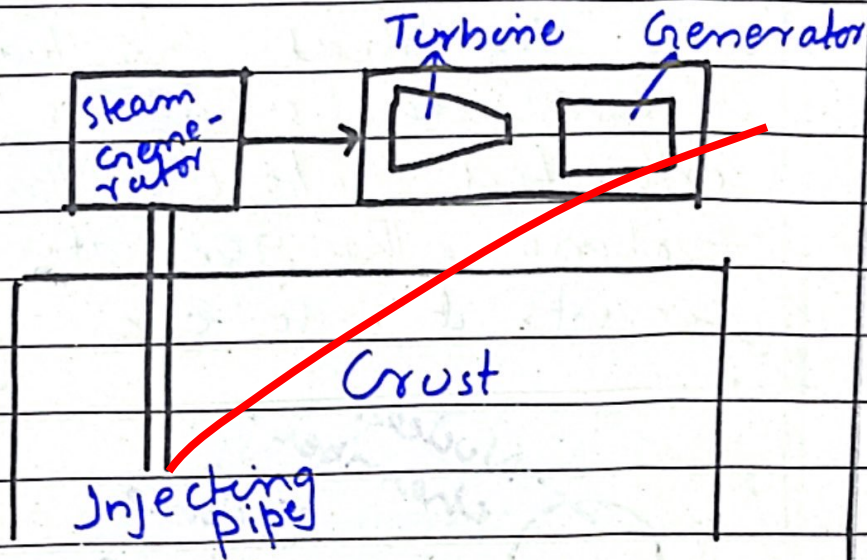 Turbine
Generator
Steam
Gene-
rator
Crust
Injecting
pipe